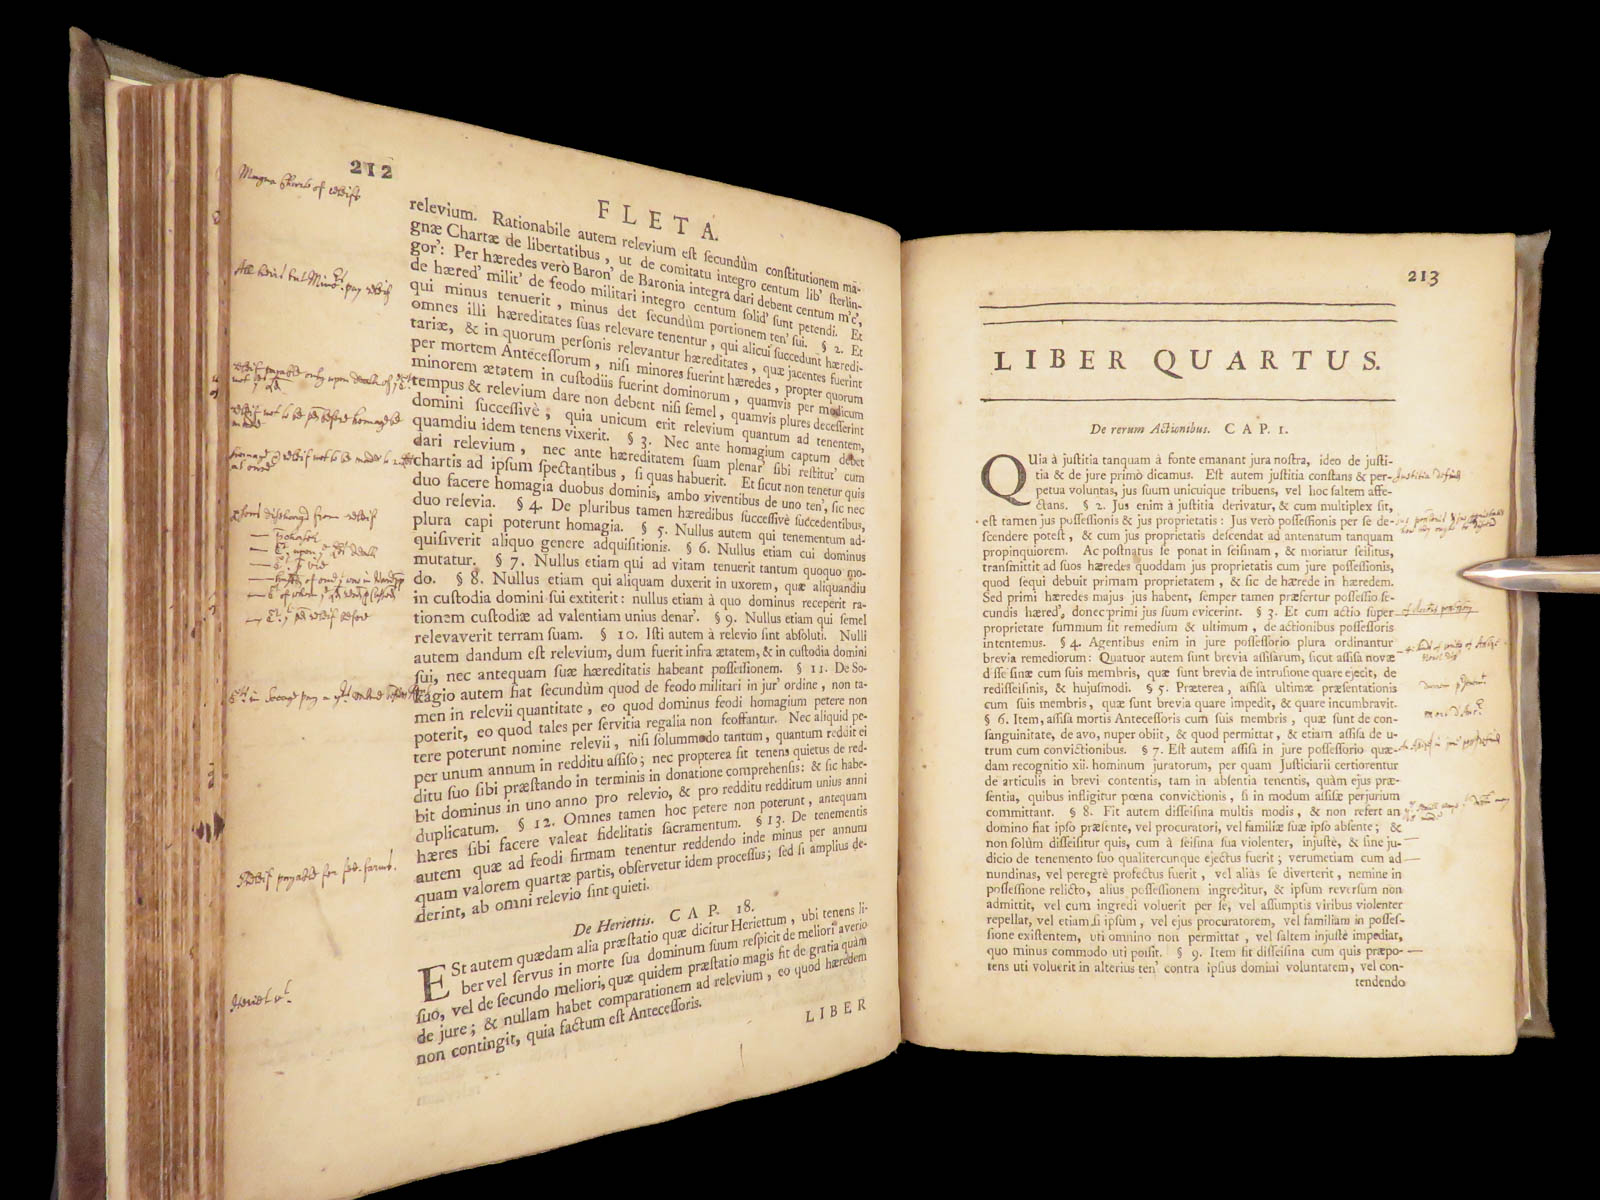 212
FLETA.
relevium. Rationabile autem relevium est secundùm constitutionem ma-
gnæ Chartæ de libertatibus, ut de comitatu integro centum lib' sterlin-
gor': Per hæredes verò Baron' de Baronia integra dari debent centum m'c',
de hæred' milit' de feodo militari integro centum solid' sunt petendi. Et
qui minus tenuerit, minus det secundùm portionem ten' sui. § 2. Et
omnes illi hæreditates suas relevare tenentur, qui alicui succedunt hæredi-
tariæ, & in quorum personis relevantur hæreditates, quæ jacentes fuerint
per mortem Antecessorum, nisi minores fuerint hæredes, propter quorum
minorem ætatem in custodiis fuerint dominorum, quamvis per modicum
tempus & relevium dare non debent nisi semel, quamvis plures decesserint
domini successivè, quia unicum erit relevium quantum ad tenentem,
quamdiu idem tenens vixerit. § 3. Nec ante homagium captum debet
dari relevium, nec ante hæreditatem suam plenar' sibi restitut' cum
chartis ad ipsum spectantibus, si quas habuerit. Et sicut non tenetur quis
duo facere homagia duobus dominis, ambo viventibus de uno ten', sic nec
duo relevia. § 4. De pluribus tamen hæredibus successivè succedentibus,
plura capi poterunt homagia. § 5. Nullus autem qui tenementum ad-
quisiverit aliquo genere adquisitionis. § 6. Nullus etiam cui dominus
mutatur. § 7. Nullus etiam qui ad vitam tenuerit tantum quoquo mo-
do. § 8. Nullus etiam qui aliquam duxerit in uxorem, quæ aliquandiu
in custodia domini sui extiterit: nullus etiam à quo dominus receperit ra-
tionem custodiæ ad valentiam unius denar'. § 9. Nullus etiam qui semel
relevaverit terram suam. § 10. Isti autem à relevio sint absoluti. Nulli
autem dandum est relevium, dum fuerit infra ætatem, & in custodia domini
sui, nec antequam suæ hæreditatis habeant possessionem. § 11. De So-
kagio autem fiat secundùm quod de feodo militari in jur' ordine, non ta-
men in relevii quantitate, eo quod dominus feodi homagium petere non
poterit, eo quod tales per servitia regalia non feoffantur. Nec aliquid pe-
tere poterunt nomine relevii, nisi solummodo tantum, quantum reddit ei
per unum annum in redditu assiso; nec propterea sit tenens quietus de red-
ditu suo sibi præstando in terminis in donatione comprehensis: & sic habe-
bit dominus in uno anno pro relevio, & pro redditu redditum unius anni
duplicatum. § 12. Omnes tamen hoc petere non poterunt, antequam
hæres sibi facere valeat fidelitatis sacramentum. § 13. De tenementis
autem quæ ad feodi firmam tenentur reddendo inde minus per annum
quam valorem quartæ partis, observetur idem processus; sed si amplius de-
derint, ab omni relevio sint quieti.
De Heriettis. CAP. 18.
ESt autem quædam alia præstatio quæ dicitur Heriettum, ubi tenens li-
ber vel servus in morte sua dominum suum respicit de meliori averio
suo, vel de secundo meliori, quæ quidem præstatio magis fit de gratia quàm
de jure; & nullam habet comparationem ad relevium, eo quod hæredem
non contingit, quia factum est Antecessoris.
LIBER
213
LIBER QUARTUS.
De rerum Actionibus. CAP. 1.
QUia à justitia tanquam à fonte emanant jura nostra, ideo de justi-
tia & de jure primò dicamus. Est autem justitia constans & per-
petua voluntas, jus suum unicuique tribuens, vel hoc saltem affe-
ctans. § 2. Jus enim à justitia derivatur, & cum multiplex sit,
est tamen jus possessionis & jus proprietatis: Jus verò possessionis per se de-
scendere potest, & cum jus proprietatis descendat ad antenatum tanquam
propinquiorem. Ac postnatus se ponat in seisinam, & moriatur seisitus,
transmittit ad suos hæredes quoddam jus proprietatis cum jure possessionis,
quod sequi debuit primam proprietatem, & sic de hærede in hæredem.
Sed primi hæredes majus jus habent, semper tamen præsertur possessio se-
cundis hæred', donec primi jus suum evicerint. § 3. Et cum actio super
proprietate summum sit remedium & ultimum, de actionibus possessoris
intentemus. § 4. Agentibus enim in jure possessorio plura ordinantur
brevia remediorum: Quatuor autem sunt brevia assisarum, sicut assisa novæ
disseisinæ cum suis membris, quæ sunt brevia de intrusione quare ejecit, de
redisseisinis, & hujusmodi. § 5. Præterea, assisa ultimæ præsentationis
cum suis membris, quæ sunt brevia quare impedit, & quare incumbravit.
§ 6. Item, assisa mortis Antecessoris cum suis membris, quæ sunt de con-
sanguinitate, de avo, nuper obiit, & quod permittat, & etiam assisa de u-
trum cum convictionibus. § 7. Est autem assisa in jure possessorio quæ-
dam recognitio xii. hominum juratorum, per quam Justiciarii certiorentur
de articulis in brevi contentis, tam in absentia tenentis, quàm ejus præ-
sentia, quibus infligitur pœna convictionis, si in modum assisæ perjurium
committant. § 8. Fit autem disseisina multis modis, & non refert an
domino fiat ipso præsente, vel procuratori, vel familiæ suæ ipso absente; &
non solùm disseisitur quis, cum à seisina sua violenter, injustè, & sine ju-
dicio de tenemento suo qualitercunque ejectus fuerit; verumetiam cum ad
nundinas, vel peregrè profectus fuerit, vel aliàs se diverterit, nemine in
possessione relicto, alius possessionem ingreditur, & ipsum reversum non
admittit, vel cum ingredi voluerit per se, vel assumptis viribus violenter
repellat, vel etiam si ipsum, vel ejus procuratorem, vel familiam in posses-
sione existentem, uti omnino non permittat, vel saltem injustè impediat,
quo minus commodo uti possit. § 9. Item fit disseisina cum quis præpo-
tens uti voluerit in alterius ten' contra ipsius domini voluntatem, vel con-
tendendo